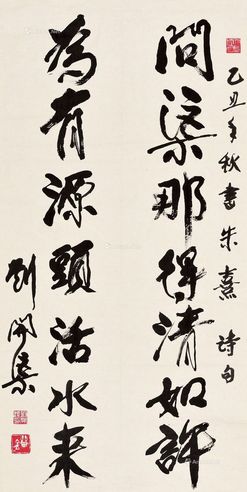 乙丑年秋書朱熹詩句
問渠那得清如許
為有源頭活水来
劉開渠